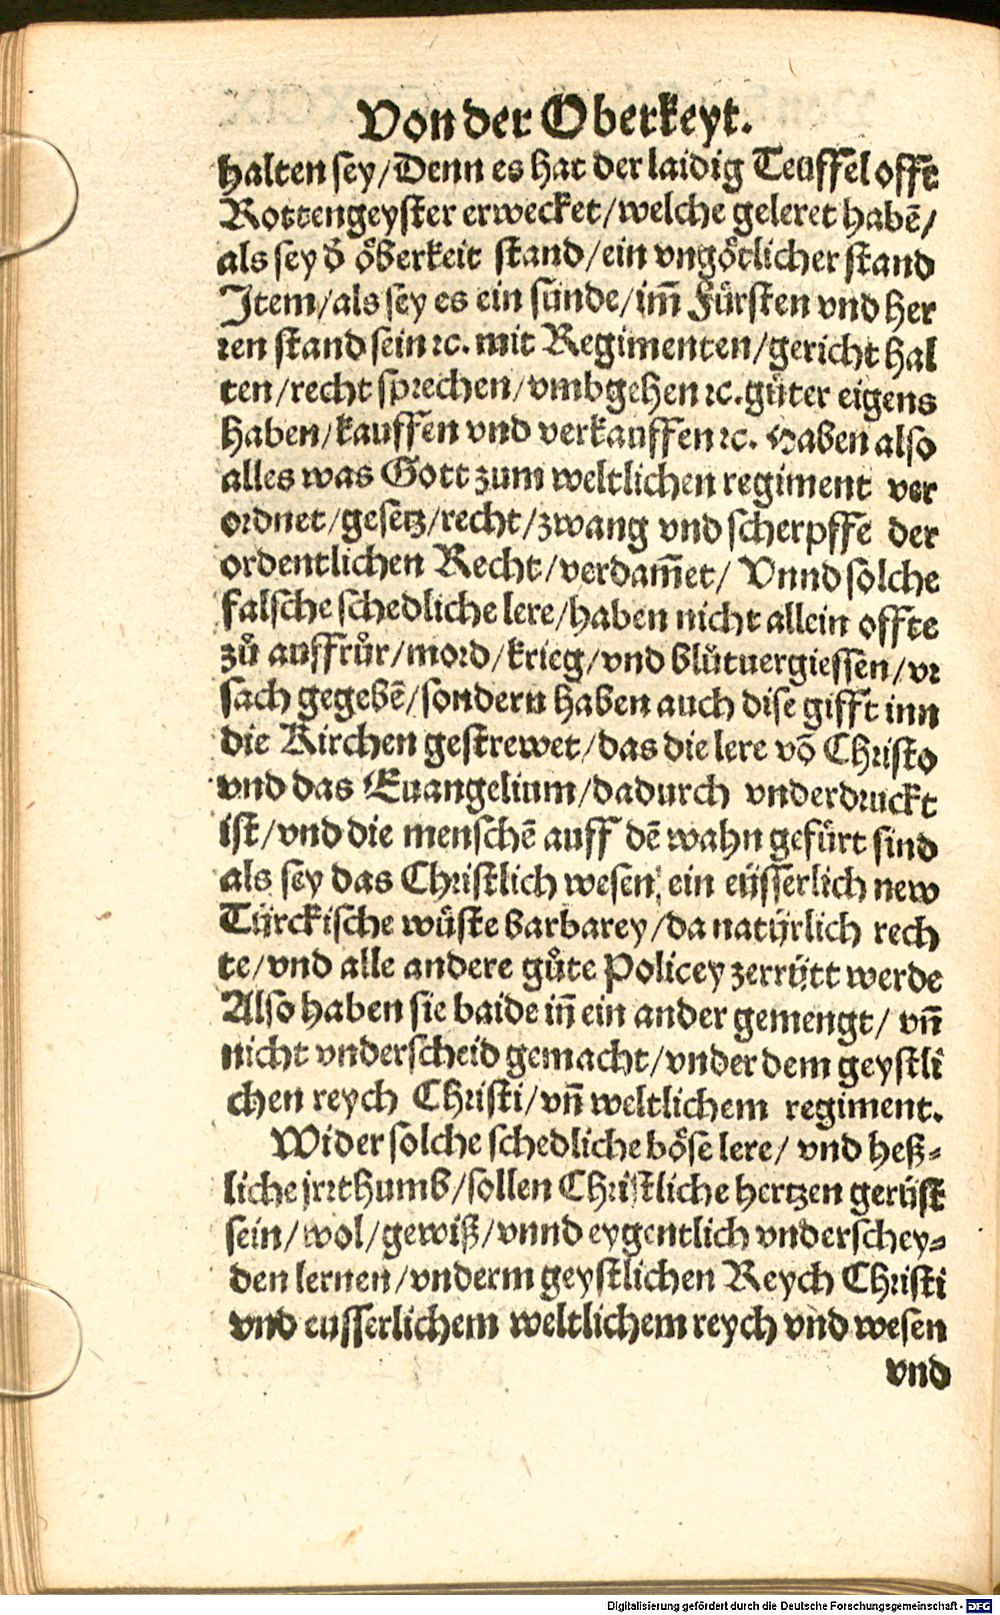 Von der Oberkeyt.
halten sey/Denn es hat der laidig Teüffel offt
Rottengeyster erwecket/welche geleret habē/
als sey d̕ öberkeit stand/ein vngötlicher stand
Item/als sey es ein sünde/im̄ Fürsten vnd Her
ren stand sein ꝛc. mit Regimenten/gericht hal
ten/recht sprechen/vmbgehen ꝛc. güter eigens
haben/kauffen vnd verkauffen ꝛc. Haben also
alles was Gott zum weltlichen regiment ver
ordnet/gesetz/recht/zwang vnd scherpffe der
ordentlichen Recht/verdam̄et/ Vnnd solche
falsche schedliche lere/haben nicht allein offte
zů auffrůr/mord/krieg/vnd blůtuergiessen/vr
sach gegebē/sondern haben auch dise gifft inn
die Kirchen gestrewet/das die lere vō Christo
vnd das Euangelium/dadurch vnderdruckt
ist/vnd die menschē auff dē wahn gefürt sind
als sey das Christlich wesen, ein eüsserlich new
Türckische wüste barbarey/da natürlich rech
te/vnd alle andere gůte Policey zerrütt werde
Also haben sie baide in̄ ein ander gemengt/ vn̄
nicht vnderscheid gemacht/vnder dem geystli
chen reych Christi/vn̄ weltlichem regiment.
Wider solche schedliche böse lere/ vnd heß-
liche jrrthumb/sollen Christliche hertzen gerüst
sein/wol/gewiß/vnnd eygentlich vnderschey-
den lernen/vnderm geystlichen Reych Christi
vnd eusserlichem weltlichem reych vnd wesen
vnd
Digitalisierung gefördert durch die Deutsche Forschungsgemeinschaft - DFG